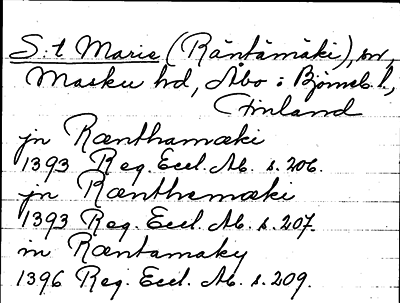 S:t Marie (Räntämäki), sn,
Masku hd, Åbo o Bjömeb. l.,
Finland
jn Rænthamæki
1393 Reg. Eccl. Ab. s. 206.
jn Rænthemæki
1393 Reg. Eccl. Ab. s. 207.
in Ræntamaky
1396 Reg. Eccl. Ab. s. 209.